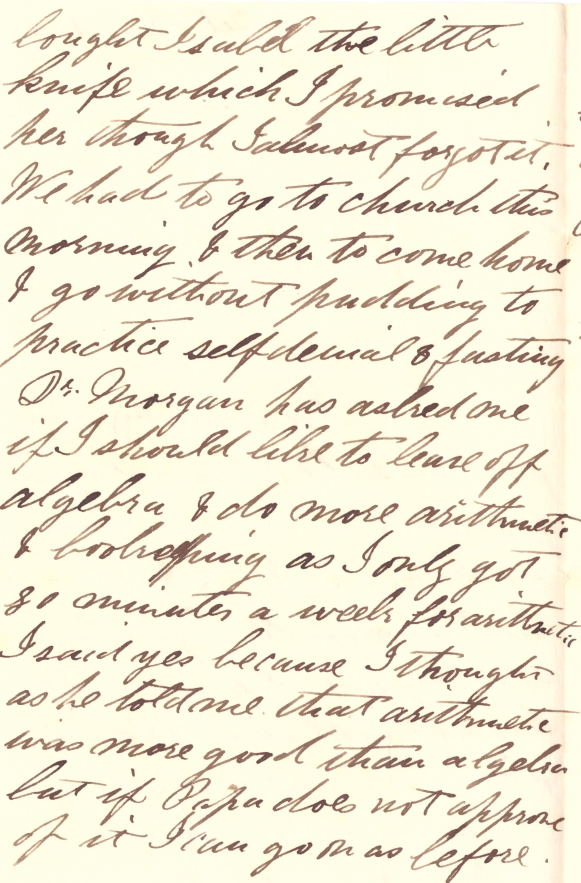 bought Isabel the little
knife which I promised
her though I almost forgot it.
We had to go to church this
morning & then to come home
& go without pudding to
practice selfdenial & fasting
Dr. Morgan has asked me
if I should like to leave off
algebra & do more arithmetic
& bookeeping as I only got
80 minutes a week for arithmetic
I said yes because I thought
as he told me that arithmetic
was more good than algebra
but if Papa does not approve
of it I can go on as before.